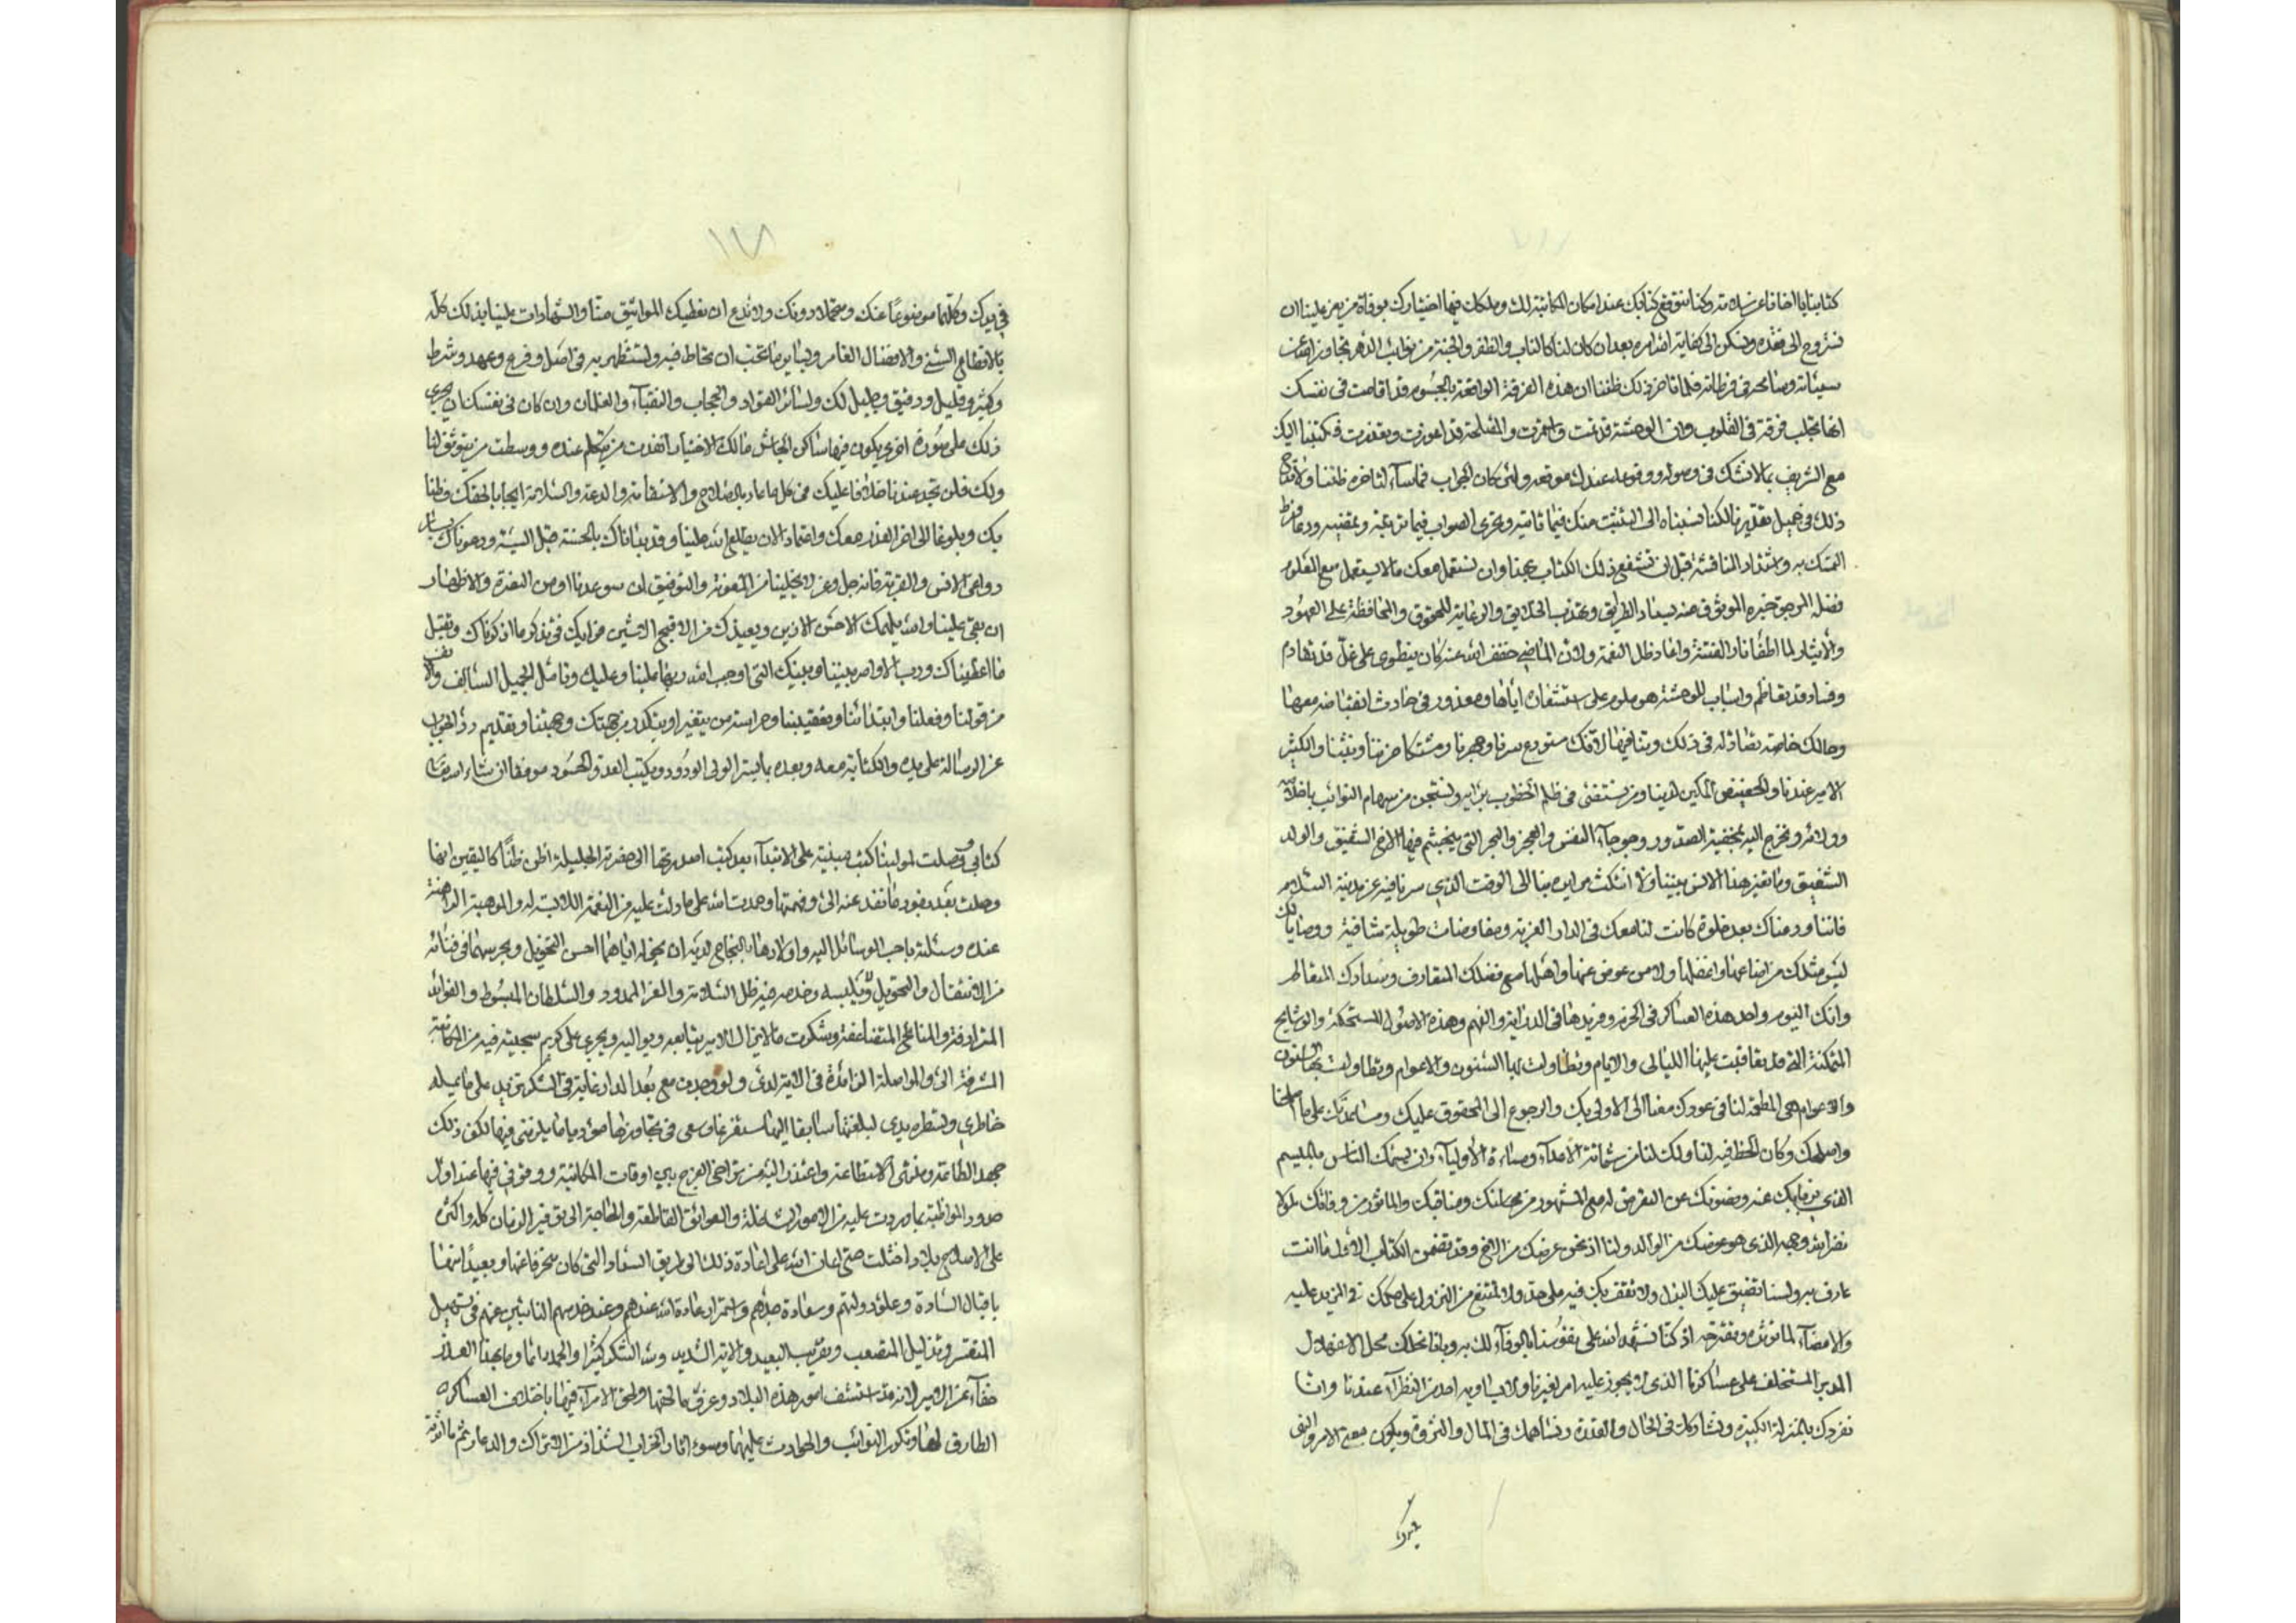 كتابنا يا اخانا عن سلامة وكنا نتوقع كتابك عند امكان المكاتبة لك وملكك فيها اختيارك بوفاة من يعز علينا ان
نروح الى فقده ونسكن الى كفاية الله امره بعد ان كان لنا كالناب والظفر والجنة من نوائب الدهر تجاوز الله عن
سيئاته وسامحه في فرطاته فلما تأخر ذلك ظننا ان هذه الفرقة الواقعة بالجسوم قد اقامت في نفسك
انها تجلب فرقة في القلوب وان الوحشة قد تمت واستمرت والمصلحة قد اعوزت وتعذرت فكتبنا اليك
مع الشريف بما لا نشك في وصوله ووقوعه عندك موقعه ولئن كان الجواب فما ساء لتأخره ظننا ولا قدح
ذلك في جميل تقديرنا لكنا نسبناه الى التثبت منك فيما تأتيه وتحرى الصواب فيما تربغه وتمضيه وربما فرط
التمسك به واشتداد المنافسة قبل ان نشفع ذلك الكتاب بمجدنا وان نستعمل معك ما لا يستعمل مع المغلوب
فضل المرجو خيره الموثوق منه بسداد الطريق وتهذيب الخلايق والرعاية للحقوق والمحافظة على العهود
والايثار لما اطفأ نار الفتنة واعاد ظل النعمة ولان الماضي خفف الله عنه كان ينطوي على غل قد تقادم
وفساد قد تعاظم واسباب للوحشة هو ملوم على استشفاف اياها ومعذور في حادث انقباضه معها
وحالك خاصة تضاد له في ذلك وتنافيها لانك مستودع سرنا وجهرنا ومشتكا حزننا وبثنا والكبير
الاثير عندنا والحفيض المكين لدينا ومن نستضئ في ظلم الخطوب برأيه ونستجن من سهام النوائب باخلاصه
وولائه ونخرج اليه بخفية الصدور وحوجآء النفس والعجر والبجر التي يتجشم فيها الاخ الشفيق والولد
الشفيق وما تغير هذا الانس بيننا ولا انتكث مرايره بنا الى الوقت الذي سرنا فيه عن مدينة السلام
فاننا ودعناك بعد خلوة كانت لنا معك في الدار العزيزة ومفاوضات طويلة شافية ووصايا لك
ليس مثلك من اضاعها واغفلها ولا من عوض عنها واهملها مع فضلك المتعارف وسدادك المتقاطر
وانك اليوم واحد هذه العساكر في الحزم وفريدها في الدراية والفهم وهذه الاصول المستحكمة والوشايج
المتمكنة التي قد تعاقبت عليها الليالي والايام وتطاولت لها السنون والاعوام وتطاولت بها السنون
والاعوام هي المطمعة لنا في عودك معنا الى الاولى بك والرجوع الى المحقوق عليك ومساعدتك على ما اصلحنا
واصلحك وكان الحظ فيه لنا ولك لنا من شماتة الاعداء ومساءة الاولياء وان يسمك الناس بالميسم
الذي يرغب بك عنه ونصونك عن التعرض له مع المشهور من محاسنك ومناقبك والماثور من وفائك لمولانا
نضر الله وجهه الذي هو عوضك من الوالد ولنا اذ نحن عوضك من الاخ وقد تضمن الكتاب الاول ما انت
عارف به ولسنا نضيق عليك البذل ولا نقف بك فيه على حد ولا نمتنع من النزول على حكمك في المزيد عليه
والامضآء لما تؤثره وتقترحه اذ كنا نشهد الله على نفوسنا بالوفآء لك به وباننا نحلك محل الاسفهسلار
المدبر المستخلف على عساكرنا الذي لا يجوز عليه امر لغيرنا ولا يساويه احد من النظرآء عندنا وانا
نفردك بالمنزلة الكبيرة ونشاركك في الحال والقدرة ونساهمك في المال والثروة ويكون معنى الامر والنهي
في يدك
١١٧
في يدك وكلها موضوعا عنك ومحملا دونك ولا ندع ان نعطيك المواثيق منا والشهادات علينا بذلك كله
بالاقطاع السني والافضال الغامر وبسائر ما تحب ان تحتاط فيه وتستظهر به في اصل وفرع وعهد وشرط
وكثير وقليل ودقيق وجليل لك ولسائر القواد والحجاب والنقبآء والغلمان وان كان في نفسك ان تجري
ذلك على صورة اخرى يكون فيها ساكن الجاش مالك الاختيار انفذت من يتكلم عنده ووسطت من يتوثق لنا
ولك فلن تجد عندنا خلافا عليك في كل ما عاد بالصلاح والاستقامة والدعة والسلامة ايجابا لحقك وظنا
بك وبلوغا الى اخر العذر معك واعتمادا لان يطلع الله علينا وقد بدأناك بالحسنة قبل السيئة ودعوناك بسائر
دواعي الانس والقربة فانه جل وعز لا يخلينا من المعونة والتوفيق ان سوعدنا او من النصرة والاظهار
ان بغى علينا والله يلهمك الاحسن الازين ويعيذك من الاقبح الاشين فرايك في تذكر ما اذكرناك وتقبل
ما اعطيناك ورب الاواصر بيننا وبينك التي اوجب الله ربها علينا وعليك وتأمل الجميل السالف والانف
من قولنا وفعلنا وابتدائنا وتعقيبنا وحراسته من يتغير او يتكدر من جهتك وجهتنا وتقديم رد الجواب
عن الرسالة على يده والكتابة معه وبعده بما يسر الولي الودود ويكبت العدو والحسود موفقا ان شاء الله تعالى
كتابي وصلت لمولينا كتب مبنية على الابتدآء بعد كتب اصدرتها الى حضرته الجليلة اظن ظنا كاليقين انها
وصلت بعد نفوذ ما نفذ عنه الي وفهمتها وحمدت الله على ما دلت عليه من النعمة اللابسة له والموهبة الراهنة
عنده وسئلته باحب الوسائل اليه واولادها بالنجاح لديه ان يخوله اياهما احسن التخويل ويحرسهما في فنائه
من الانتقال والتحويل ويلبسه وخدمه خير ظل السلامة والعز الممدود والسلطان المبسوط والفوائد
المترادفة والمناجح المتضاعفة وشكرت ما لا يزال الامير يتابعه ويواليه ويجري على كريم سجيته فيه من المكاتبة
المشرفة الي والمواصلة الزائدة في الاثرة لدي ولو وجدت مع بعد الدار غاية في الشكر تزيد على ما يمليه
خاطري وتسطره يدي لبلغتها سابقا اليها مستفرغا وسعي في تجاوزها مؤديا ما يلزمني فيها لكن ذلك
جهد الطاعة ومنتهى الاستطاعة واعتذر اليه من تراخي الفرج بين اوقات المكاتبة ووقوفي فيها عند اول
حدود المواظبة بما وردت عليه من الامور الشاغلة والعوائق القاطعة والحاجة الى توفير الزمان كله واكثره
على اصلاح بلاد اختلت حتى اعان الله على اعادة ذلك الى طريق السداد التي كان منحرفا عنها وبعيدا منها
باقبال السادة وعلو دولتهم وسعادة جدهم واستمرار عادة الله عندهم وعند خدمهم النائبين عنهم في تسهيل
المتعسر وتذليل المتصعب وتقريب البعيد والانة الشديد ولله الشكر كثيرا والحمد دائما وما بهذا العذر
خفآء عن الامير لانه قد استشف امور هذه البلاد وعرف ما لحقها ولحق الامرآء فيها باختلاف العساكر
الطارق لها وتكرر النوائب والحوادث عليها وسوء اثار الخراب الشذاذ من الاتراك والدعار ثم ما اثرته